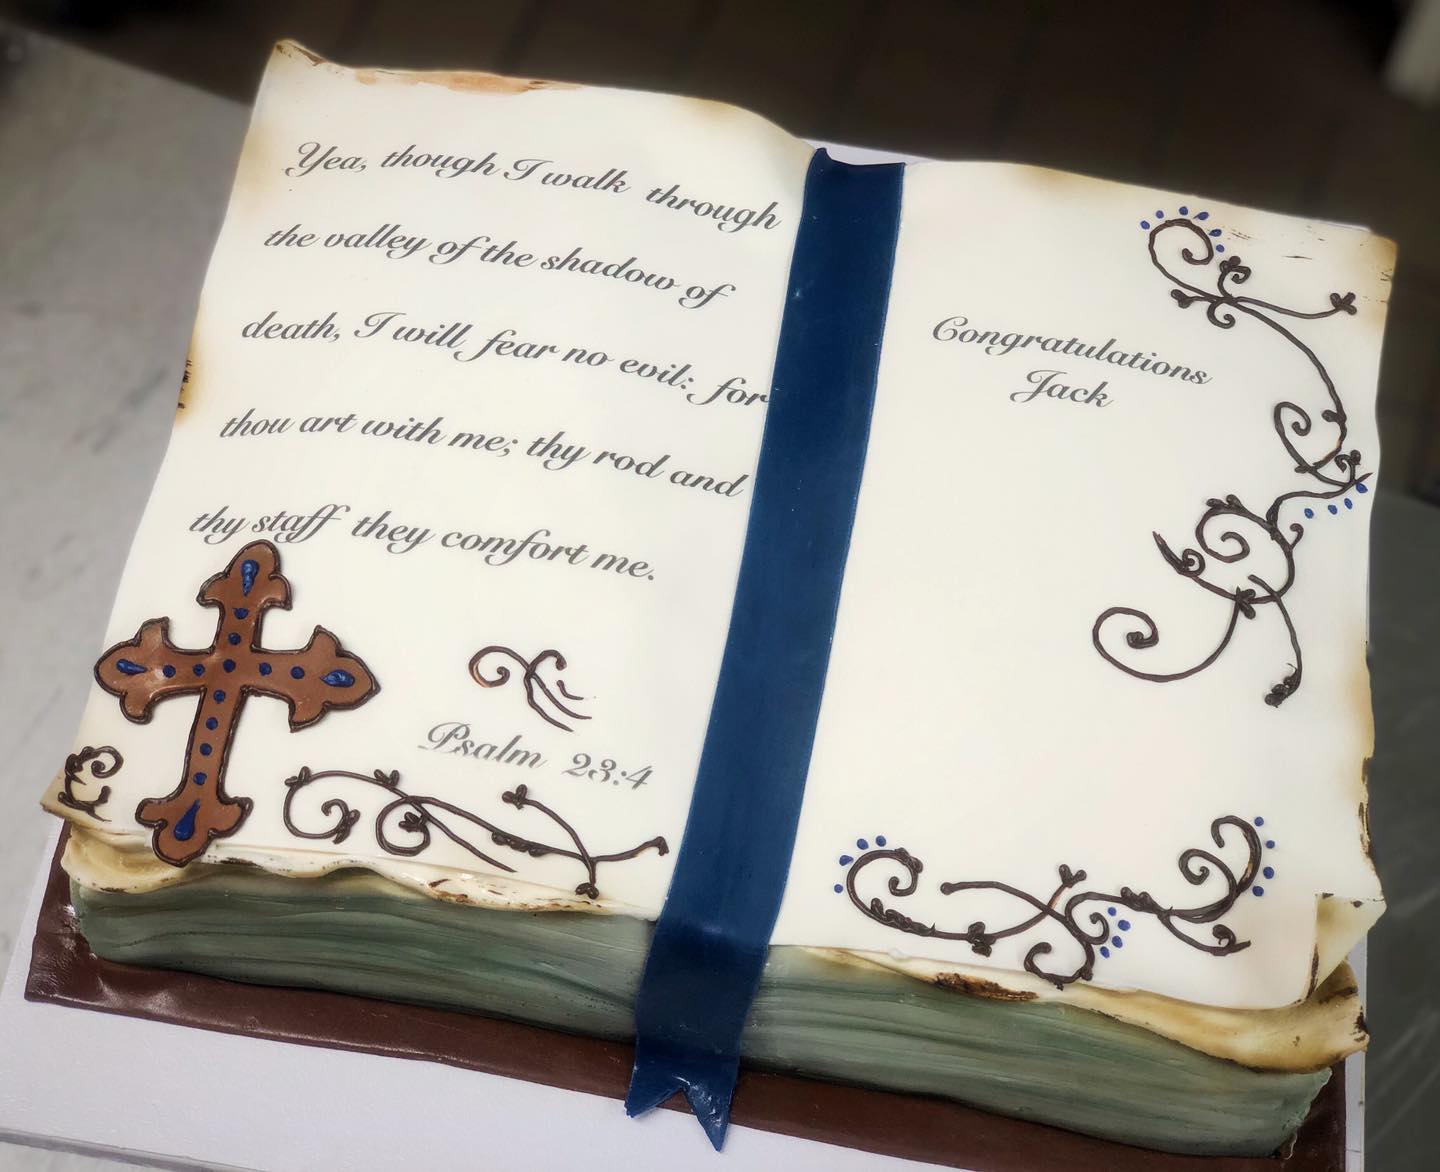 Yea, though I walk through
the valley of the shadow of
death, I will fear no evil: for
thou art with me; thy rod and
thy staff they comfort me.
Psalm 23:4
Congratulations
Jack